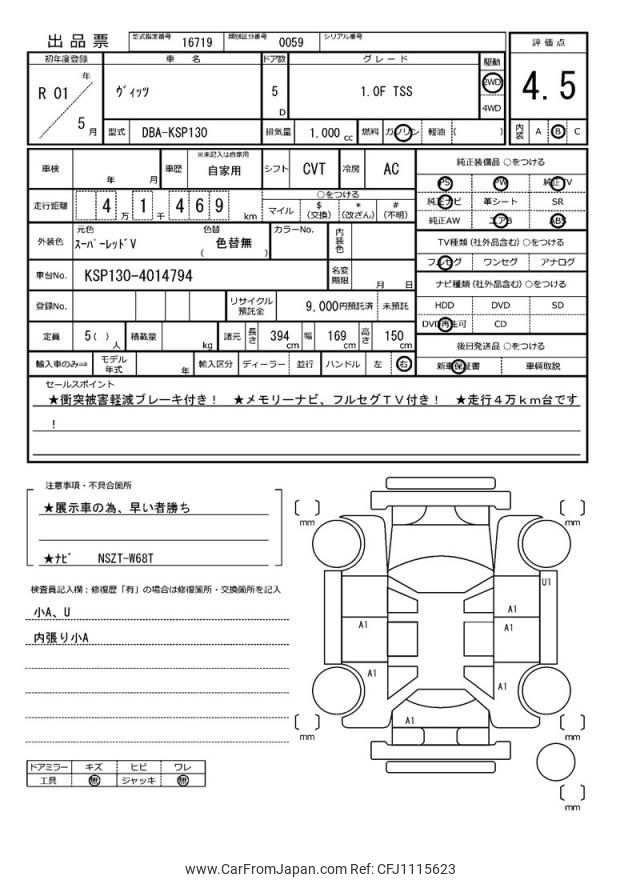 出品票
型式指定番号 16719 類別区分番号 0059 シリアル番号
初年度登録 車名 ドア数 グレード 駆動 評価点
R 01 年 5 月 ヴィッツ 5 D 1.0F TSS 2WD 4WD 4.5
型式 DBA-KSP130 排気量 1,000 cc 燃料 ガソリン 軽油 ( ) 内装 A B C
車検 年 月 車歴 ※未記入は自家用 自家用 シフト CVT 冷房 AC
純正装備品 ○をつける
PS PW 純正TV
純正ナビ 革シート SR
純正AW エアB ABS
走行距離 4 万 1 千 4 6 9 km
○をつける
マイル $ (交換) * (改ざん) # (不明)
外装色 元色 スーパーレッドV 色替 ( 色替無 ) カラーNo. 内装色
TV種類 (社外品含む) ○をつける
フルセグ ワンセグ アナログ
車台No. KSP130-4014794 名変期限 月 日
ナビ種類 (社外品含む) ○をつける
登録No. リサイクル預託金 9,000円預託済 未預託
HDD DVD SD
DVD再生可 CD
定員 5( ) 人 積載量 kg 諸元 長さ 394 cm 幅 169 cm 高さ 150 cm
後日発送品 ○をつける
輸入車のみ⇒ モデル年式 年 輸入区分 ディーラー 並行 ハンドル 左 右
新車保証書 車輌取説
セールスポイント
★衝突被害軽減ブレーキ付き! ★メモリーナビ、フルセグTV付き! ★走行4万km台です
!
注意事項・不具合箇所
★展示車の為、早い者勝ち
★ナビ NSZT-W68T
検査員記入欄:修復歴「有」の場合は修復箇所・交換箇所を記入
小A、U
内張り小A
ドアミラー キズ ヒビ ワレ
工具 無 ジャッキ 無
mm
mm
U1
A1
A1
A1
A1
A1
A1
mm
mm
mm
www.CarFromJapan.com Ref: CFJ1115623